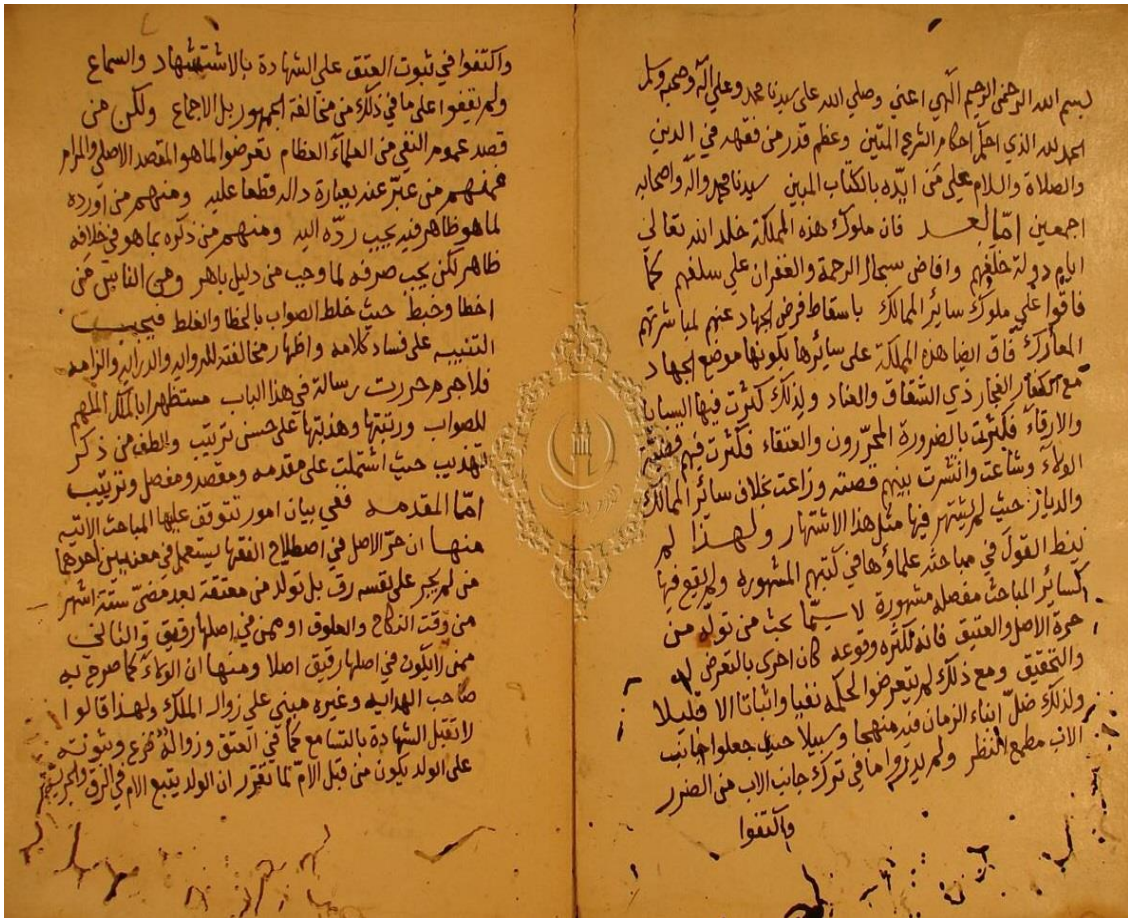 بسم الله الرحمن الرحيم الهي اعني وصلي الله علي سيدنا محمد وعلي آله وصحبه وسلم
الحمد لله الذي احكم احكام الشرع المتين وعظم قدر من فقهه في الدين
والصلاة والسلام علي من ايده بالكتاب المبين سيدنا محمد واله واصحابه
اجمعين امّا بعد فان ملوك هذه المملكة خلد الله تعالي
ايام دولة خلفهم وافاض سجال الرحمة والغفران علي سلفهم كما
فاقوا علي ملوك سائر الممالك باسقاط فرض الجهاد عنهم لمباشرتهم
المعارك فاق ايضا هذه المملكة علي سائرها بكونها موضع الجهاد
مع الكفار الفجار ذي الشقاق والعناد ولذلك كثرت فيها السبايا
والارقاء فكثرت بالضرورة المحررون والعتقاء فكثرت فيهم قضية
الولاء وشاعت وانتشرت بينهم قصته وزاعت بخلاف سائر الممالك
والديار حيث لم يشتهر فيها مثل هذا الاشتهار ولهذا لم
يبسط القول في مباحثه علماؤها في كتبهم المشهورة ولم يقع فيها
كسائر المباحث مفصله مشهورة لا سيما بحث من تولد من
حرة الاصل والعتيق فانه لكثرة وقوعه كان احرى بالتعرض له
والتحقيق ومع ذلك لم يتعرضوا لحكمه نفيا واثباتا الا قليلا
ولذلك ضل ابناء الزمان فيه منهجا وسبيلا حيث جعلوا جانب
الاب مطمح النظر ولم يدروا ما في ترك جانب الاب من الضرر
واكتفوا
واكتفوا في ثبوت العتق علي الشهادة بالاشتشهاد والسماع
ولم يقفوا علي ما في ذلك من مخالفة الجمهور بل الاجماع ولكن من
قصد عموم النفي من العلماء العظام تعرضوا لما هو المقصد الاصلي والمرام
فمنهم من عبّر عنه بعبارة دالة قطعا عليه ومنهم من اورده
لما هو ظاهر فيه يجب ردّه اليه ومنهم من ذكره بما هو في خلافه
ظاهر لكن يجب صرفه لما وجب من دليل باهر ومن الفائتين من
اخطا وخبط حيث خلط الصواب بالخطا والغلط فيجب
التنبيه علي فساد كلامه واظهار مخالفته للرواية والدراية والزامه
فلا جرم حررت رسالة في هذا الباب مستظهرا بالملك الملهم
للصواب ورتبتها وهذبتها علي حسن ترتيب والطف من ذكر
تهذيب حيث اشتملت علي مقدمه ومقصد ومفصل وترتيب
امّا المقدمه ففي بيان امور تتوقف عليها المباحث الاتيه
منها ان حرّ الاصل في اصطلاح الفقها يستعمل في معنيين احدهما
من لم يجر علي نفسه رق بل تولد من معتقة بعد مضيّ ستة اشهر
من وقت النكاح والعلوق او ممن في اصلها رقيق والثاني
ممن لا يكون في اصلها رقيق اصلا ومنها ان الولاء كما صرح به
صاحب الهدايه وغيره مبني علي زوال الملك ولهذا قالوا
لا تقبل الشهادة بالتسامع كما في العتق وزواله فرع وثبوته
علي الولد يكون من قبل الامّ لما تقرر ان الولد يتبع الام في الرق والحرية